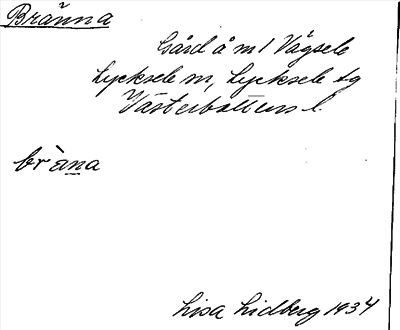 Bränna
Gård å m 1 Vägsele
Lycksele sn, Lycksele tg
Västerbottens l.
br`äna
Lisa Lidberg 1934